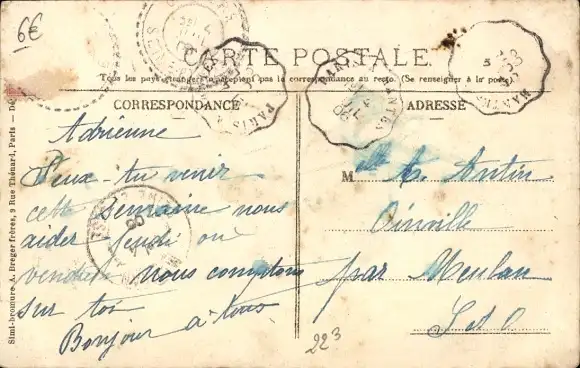 6€
CARTE POSTALE
Tous les pays étrangers n'acceptent pas la correspondance au recto. (Se renseigner à la poste).
CORRESPONDANCE
ADRESSE
Adrienne
Peux-tu venir
cette semaine nous
aider jeudi ou
vendredi nous comptons
sur toi
Bonjour à tous
Melle A. Antin
Oinville
par Meulan
S et O
223
Simi-bromure A. Breger frères, 9 Rue Thénard, Paris
PARIS
MANTES
MANTES